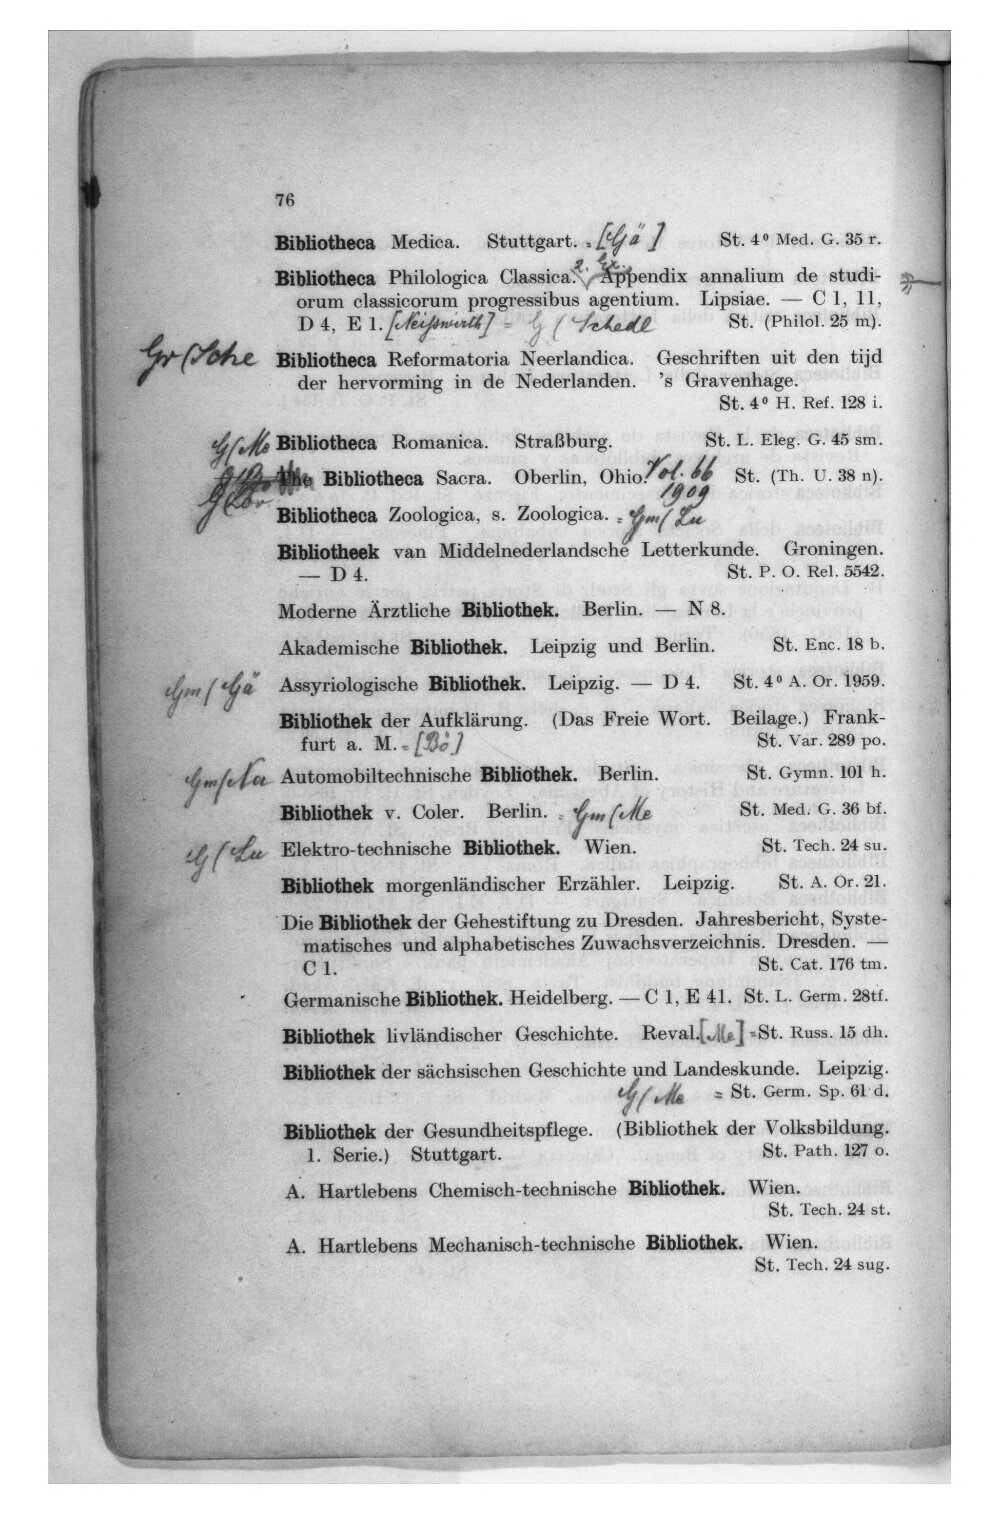 76
Bibliotheca Medica. Stuttgart. = [Gä] St. 4⁰ Med. G. 35 r.
2. Ex.
Bibliotheca Philologica Classica. Appendix annalium de studi-
orum classicorum progressibus agentium. Lipsiae. — C 1, 11,
D 4, E 1. [Neißwirth] = G (Schedl St. (Philol. 25 m).
Gr (Sche Bibliotheca Reformatoria Neerlandica. Geschriften uit den tijd
der hervorming in de Nederlanden. 's Gravenhage.
St. 4⁰ H. Ref. 128 i.
G (Me Bibliotheca Romanica. Straßburg. St. L. Eleg. G. 45 sm.
The Bibliotheca Sacra. Oberlin, Ohio. Vol. 66 St. (Th. U. 38 n).
1909
Bibliotheca Zoologica, s. Zoologica. = Gm (Lu
Bibliotheek van Middelnederlandsche Letterkunde. Groningen.
— D 4. St. P. O. Rel. 5542.
Moderne Ärztliche Bibliothek. Berlin. — N 8.
Akademische Bibliothek. Leipzig und Berlin. St. Enc. 18 b.
Gm (Gä Assyriologische Bibliothek. Leipzig. — D 4. St. 4⁰ A. Or. 1959.
Bibliothek der Aufklärung. (Das Freie Wort. Beilage.) Frank-
furt a. M. = [Bö] St. Var. 289 po.
Gm (Na Automobiltechnische Bibliothek. Berlin. St. Gymn. 101 h.
Bibliothek v. Coler. Berlin. = Gm (Me St. Med. G. 36 bf.
G (Lu Elektro-technische Bibliothek. Wien. St. Tech. 24 su.
Bibliothek morgenländischer Erzähler. Leipzig. St. A. Or. 21.
Die Bibliothek der Gehestiftung zu Dresden. Jahresbericht, Syste-
matisches und alphabetisches Zuwachsverzeichnis. Dresden. —
C 1. St. Cat. 176 tm.
Germanische Bibliothek. Heidelberg. — C 1, E 41. St. L. Germ. 28tf.
Bibliothek livländischer Geschichte. Reval. [Me] = St. Russ. 15 dh.
Bibliothek der sächsischen Geschichte und Landeskunde. Leipzig.
G (Me = St. Germ. Sp. 61 d.
Bibliothek der Gesundheitspflege. (Bibliothek der Volksbildung.
1. Serie.) Stuttgart. St. Path. 127 o.
A. Hartlebens Chemisch-technische Bibliothek. Wien.
St. Tech. 24 st.
A. Hartlebens Mechanisch-technische Bibliothek. Wien.
St. Tech. 24 sug.